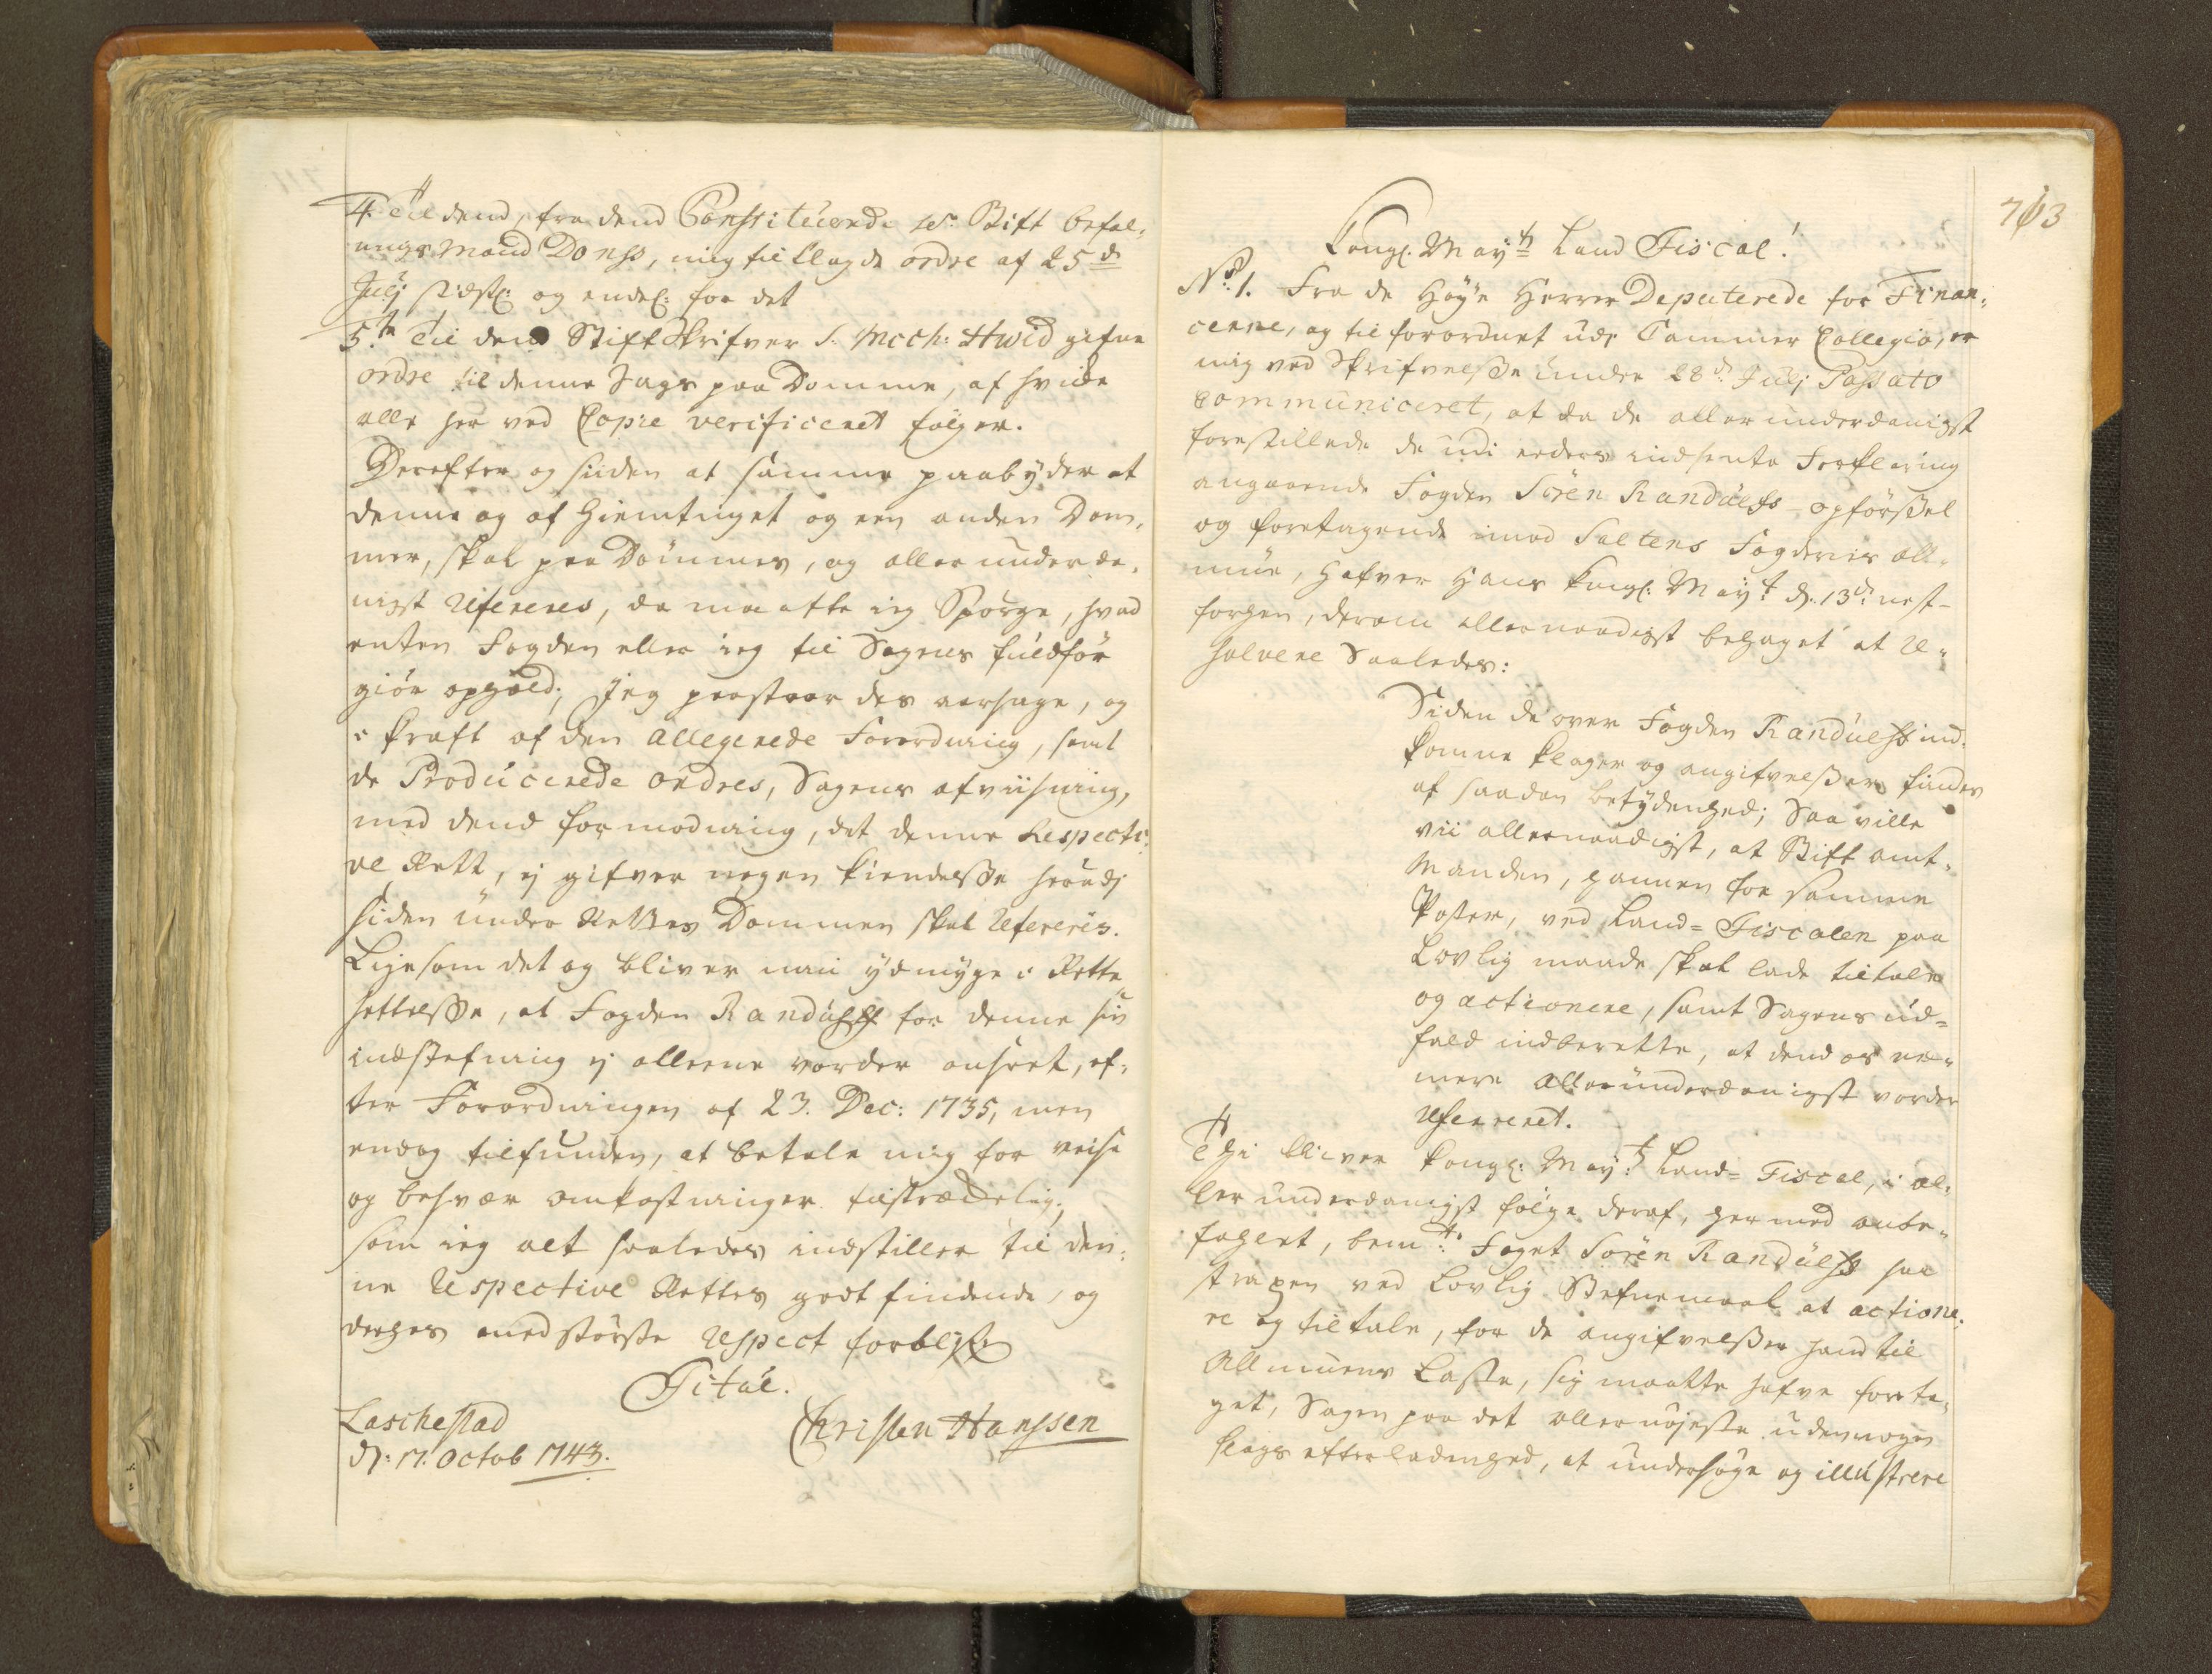 4. Til dend, fra dend Constituerede Hr Stift befal¬
ings Mand Dons, mig tillagde ordre af 25de
Julj sidstl: og endel: for det
5te Til den Stift Skrifver S. Mich: Hwid gifne
ordre til denne Sags paa Domme, af hvilke
alle her ved Copie verificeret følger.
Derefter og siiden at samme paabyder at
denne og af Hiemtinget og een anden Dom¬
mer, skal paa Dømmes, og allerunderda¬
nigst Refereres, da maatte ieg Spørge, hvad
enten Fogden eller ieg til Sagens fuldfør
giør ophold; Jeg paastaar des aarsage, og
i kraft af den allegerede Forordning, samt
de Producerede ordres, Sagens afviisning,
med dend formodning, det denne Respecti¬
ve Rett, ej gifver nogen kiendelsse herudj
siden under Rettes Dommen skal Refereris.
Ligesom det og bliver min ydmyge i Rette
settelsse, at Fogden Randulff for denne sin
indstefning ej alleene vorder anseet, ef¬
ter Forordningen af 23. Dec: 1735, men
endog tilfunden, at betale mig for reise
og besvær omkostninger tilstrædelig;
som ieg alt saaledes indstiller til den¬
ne Respective Rettes godtfindende, og
derhos med største Respect forblifr
Titul.
Laschestad
d: 17. Octob 1743.
Christen Hanssen
703
Kongl. Mayts Land Fiscal!
No 1. Fra de Høye Herrer Deputerede for Finan¬
cerne, og til forordnet udj Cammer Collegio, er
mig ved Skrifvelsse under 28de Julj Passato
communiceret, at da de allerunderdanigst
forestillede de udi eeders indsente Forklaring
angaaende Fogden Sören Randulfs opførssel
og foretagende imod Saltens Fogderies All¬
mue, Hafver Hans Kongl: Mayt d. 13de nest¬
forhen, derom allernaadigst behaget at Re¬
solvere Saaledes:
Siden de over Fogden Randulfs ind¬
komne klager og angifvelsser findes
af saadan betydenhed; Saa ville
vii allernaadigst, at Stift amt¬
Manden, hannem for samme
Poster, ved Land=Fiscalen paa
Lovlig maade skal lade tiltale
og actionere, samt Sagens ud¬
fald indberette, at dend os ner¬
mere allerunderdanigst vorder
Refereret.
Thi bliver Kongl: Mayts Land=Fiscal, i al¬
lerunderdanigst følge deraf, hermed anbe¬
falget, bemte Foget Sören Randulfs saa
strapen ved Lovlig Stefnemaal at actione¬
re og tiltale, for de angifvelsser hand til
Allmuens Laste, sig maatte hafve foreta¬
get, Sagen paa det allernøjeste uden nogen
slags efterladenhed, at undersøge og illustrere